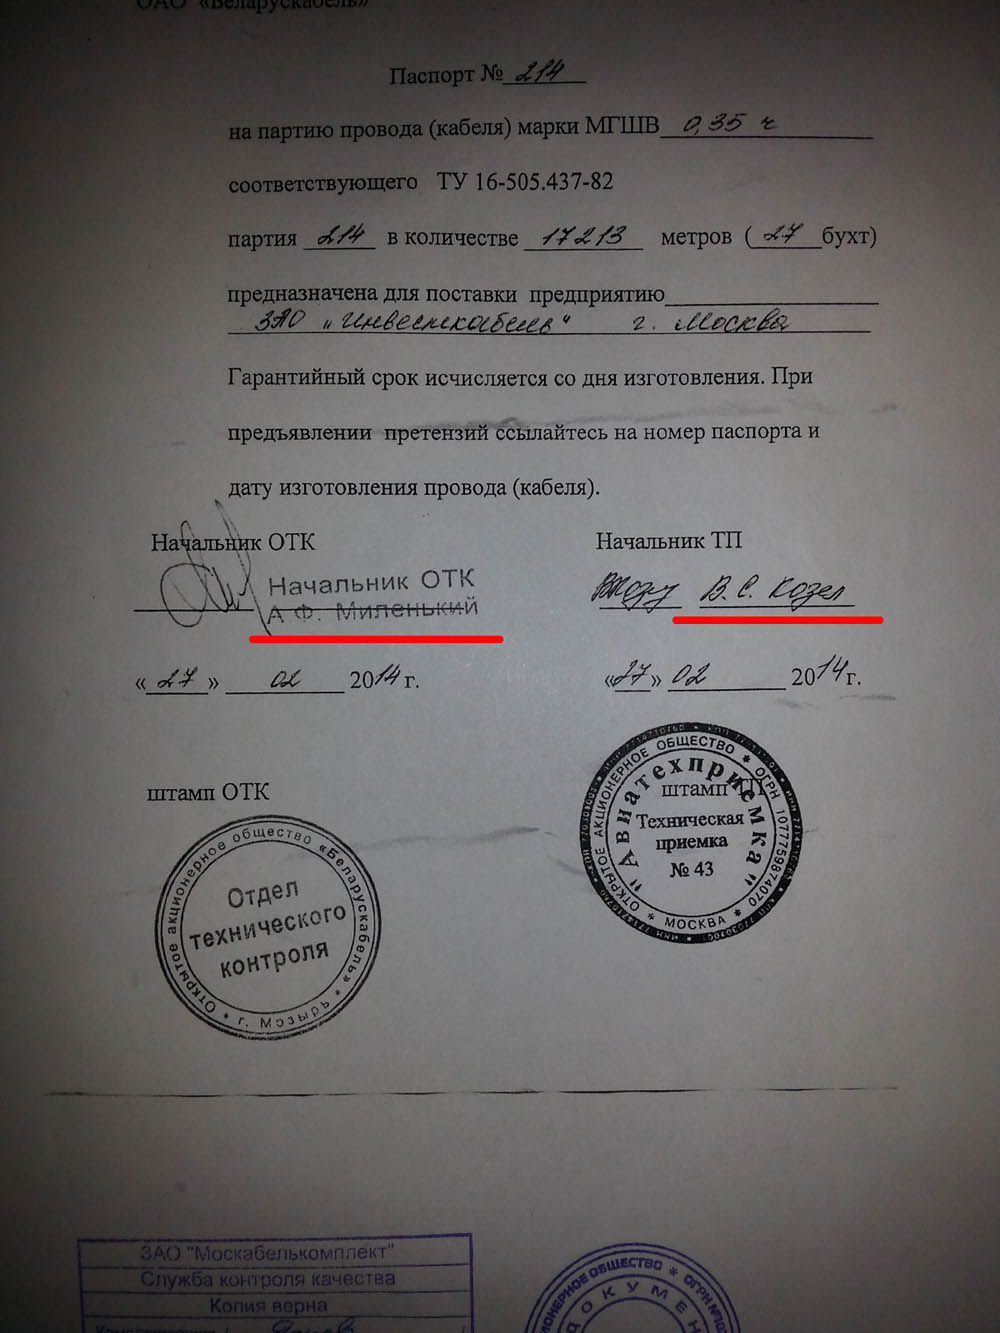 ОАО «Беларускабель»
Паспорт № 214
на партию провода (кабеля) марки МГШВ 0,35 ч
соответствующего ТУ 16-505.437-82
партия 214 в количестве 17213 метров ( 27 бухт)
предназначена для поставки предприятию
ЗАО „Инвесткабель“ г. Москва
Гарантийный срок исчисляется со дня изготовления. При
предъявлении претензий ссылайтесь на номер паспорта и
дату изготовления провода (кабеля).
Начальник ОТК Начальник ТП
Начальник ОТК
А.Ф. Миленький
В. С. Козел
« 27 » 02 2014 г. «27» 02 2014 г.
штамп ОТК
Открытое акционерное общество «Беларускабель»
г. Мозырь
Отдел
технического
контроля
ОТКРЫТОЕ АКЦИОНЕРНОЕ ОБЩЕСТВО * ОГРН 1077759874070 * МОСКВА *
"Авиатехприемка"
штамп ТП
Техническая
приемка
№ 43
ЗАО "Москабелькомплект"
Служба контроля качества
Копия верна